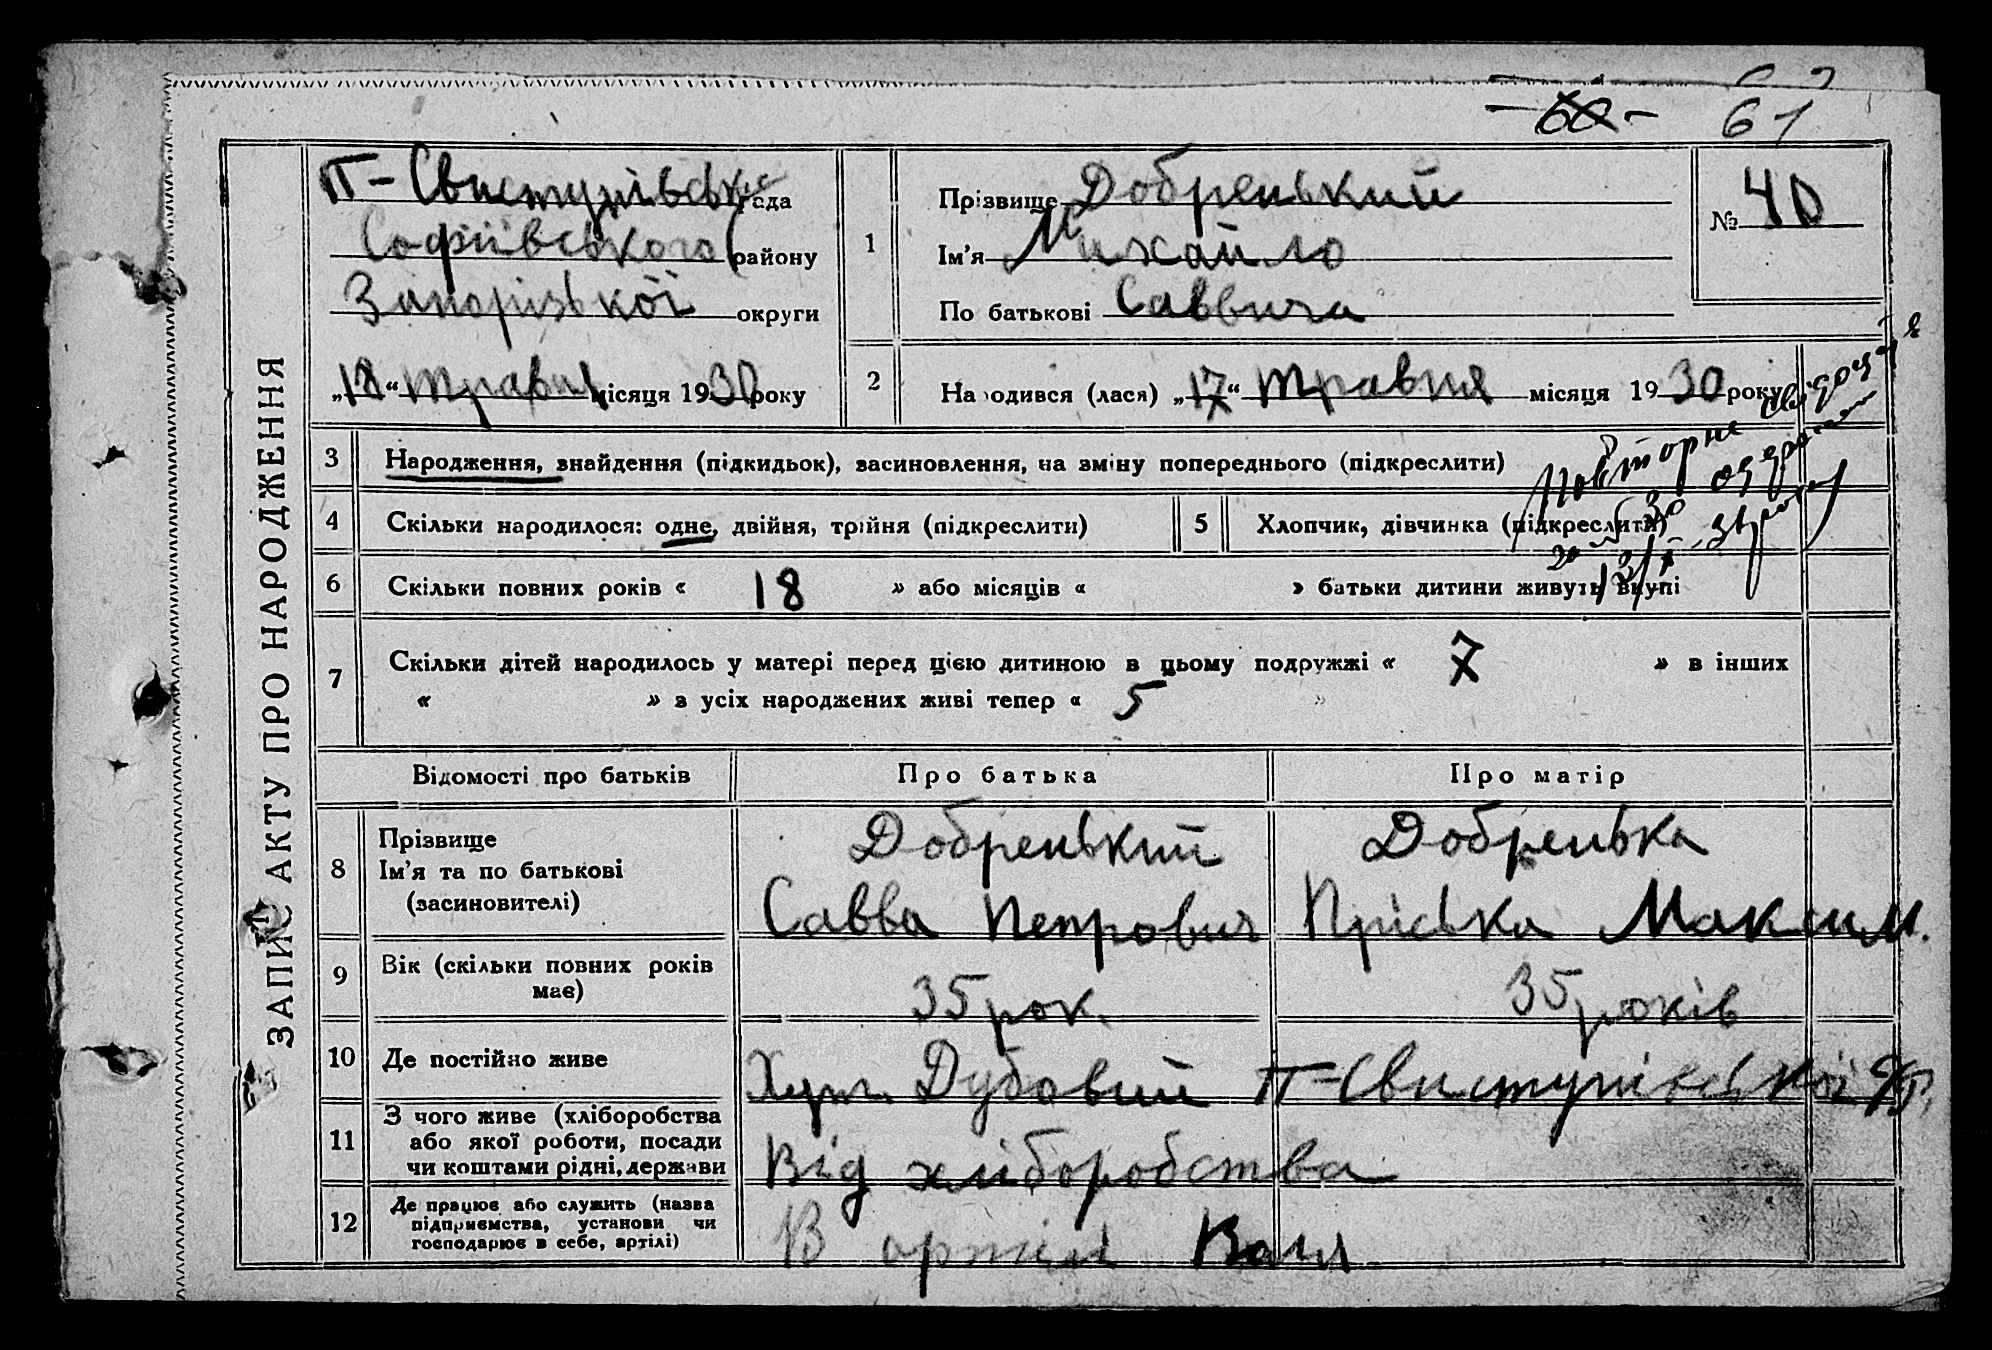 60 61
ЗАПИС АКТУ ПРО НАРОДЖЕННЯ
П-Свистунівська рада
Софіївського району
Запорізької округи
„18“ травня місяця 1930 року
1
Прізвище Добренький
Ім'я Михайло
По батькові Саввича
№ 40
2
Народився (лася) „17“ травня місяця 1930 року
3 Народження, знайдення (підкидьок), засиновлення, на зміну попереднього (підкреслити)
4 Скільки народилося: одне, двійня, трійня (підкреслити)
5 Хлопчик, дівчинка (підкреслити)
Повторне свідоцтя
6 Скільки повних років « 18 » або місяців « » батьки дитини живуть вкупі
7 Скільки дітей народилось у матері перед цією дитиною в цьому подружжі « 7 » в інших
« » з усіх народжених живі тепер « 5 »
Відомості про батьків Про батька Про матір
8 Прізвище
Ім'я та по батькові
(засиновителі)
Добренький
Савва Петрович
Добренька
Пріська Максим.
9 Вік (скільки повних років
має)
35 рок. 35 років
10 Де постійно живе Хут. Дубовий П-Свистунівської
11 З чого живе (хліборобства
або якої роботи, посади
чи коштами рідні, держави
Від хліборобства
12 Де працює або служить (назва
підприємства, установи чи
господарює в себе, артілі)
В артілі